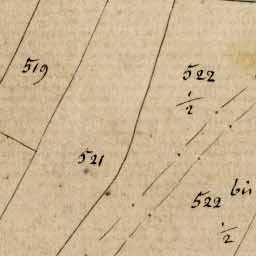 519
522
1/2
521
522
1/2